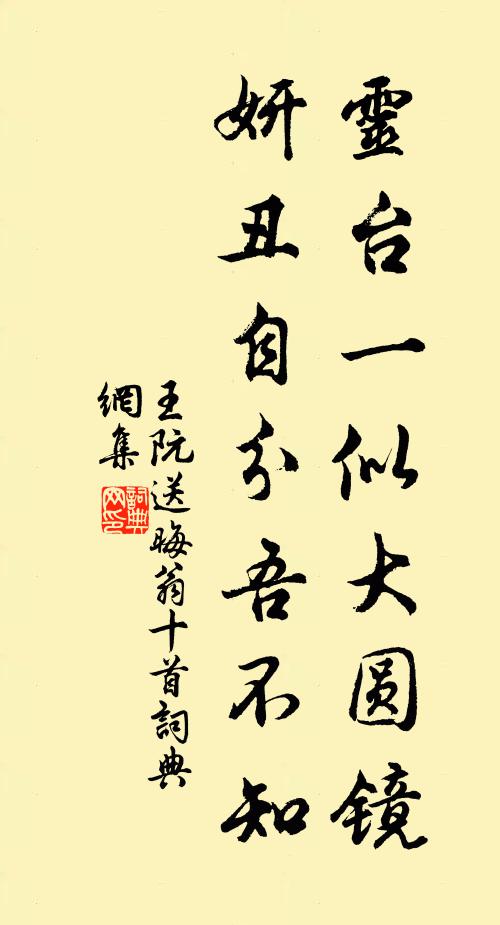 靈台一似大圆鏡
妍丑自分吾不知
王阮送晦翁十首詞典
網集
詞典网印